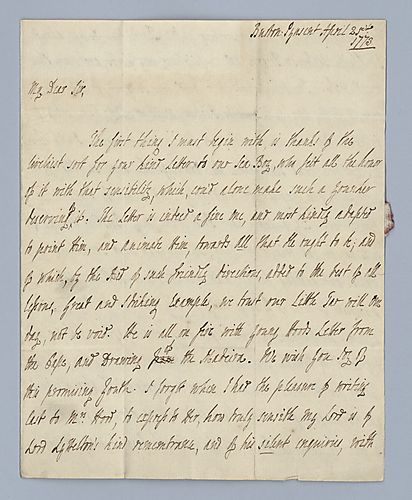 Burton Pynsent April 21st
1773
My Dear Sir,
The first thing I must begin with is thanks of the
liveliest sort for your kind Letter to our Sea Boy, who felt all the honor
of it with that sensibility, which, cou'd alone make such a Youngster
deserving of it. The Letter is indeed a fine one, and most kindly adapted
to point Him, and animate Him towards all that He ought to be, and
of which, by the Aid of such friendly directions, added to the best of all
Lessons, Great and Striking Example, we trust our Little Tar will one
day, not be void. He is all on fire with young Hood's Letter from
the Cape, and Drawing of the Madeira. We wish you Joy of
this promising Youth. I forgot when I had the pleasure of writing
last to Mrs Hood, to express to Her, how truly sensible My Lord is of
Lord Lyttelton's kind remembrance, and of his silent enquiries, with